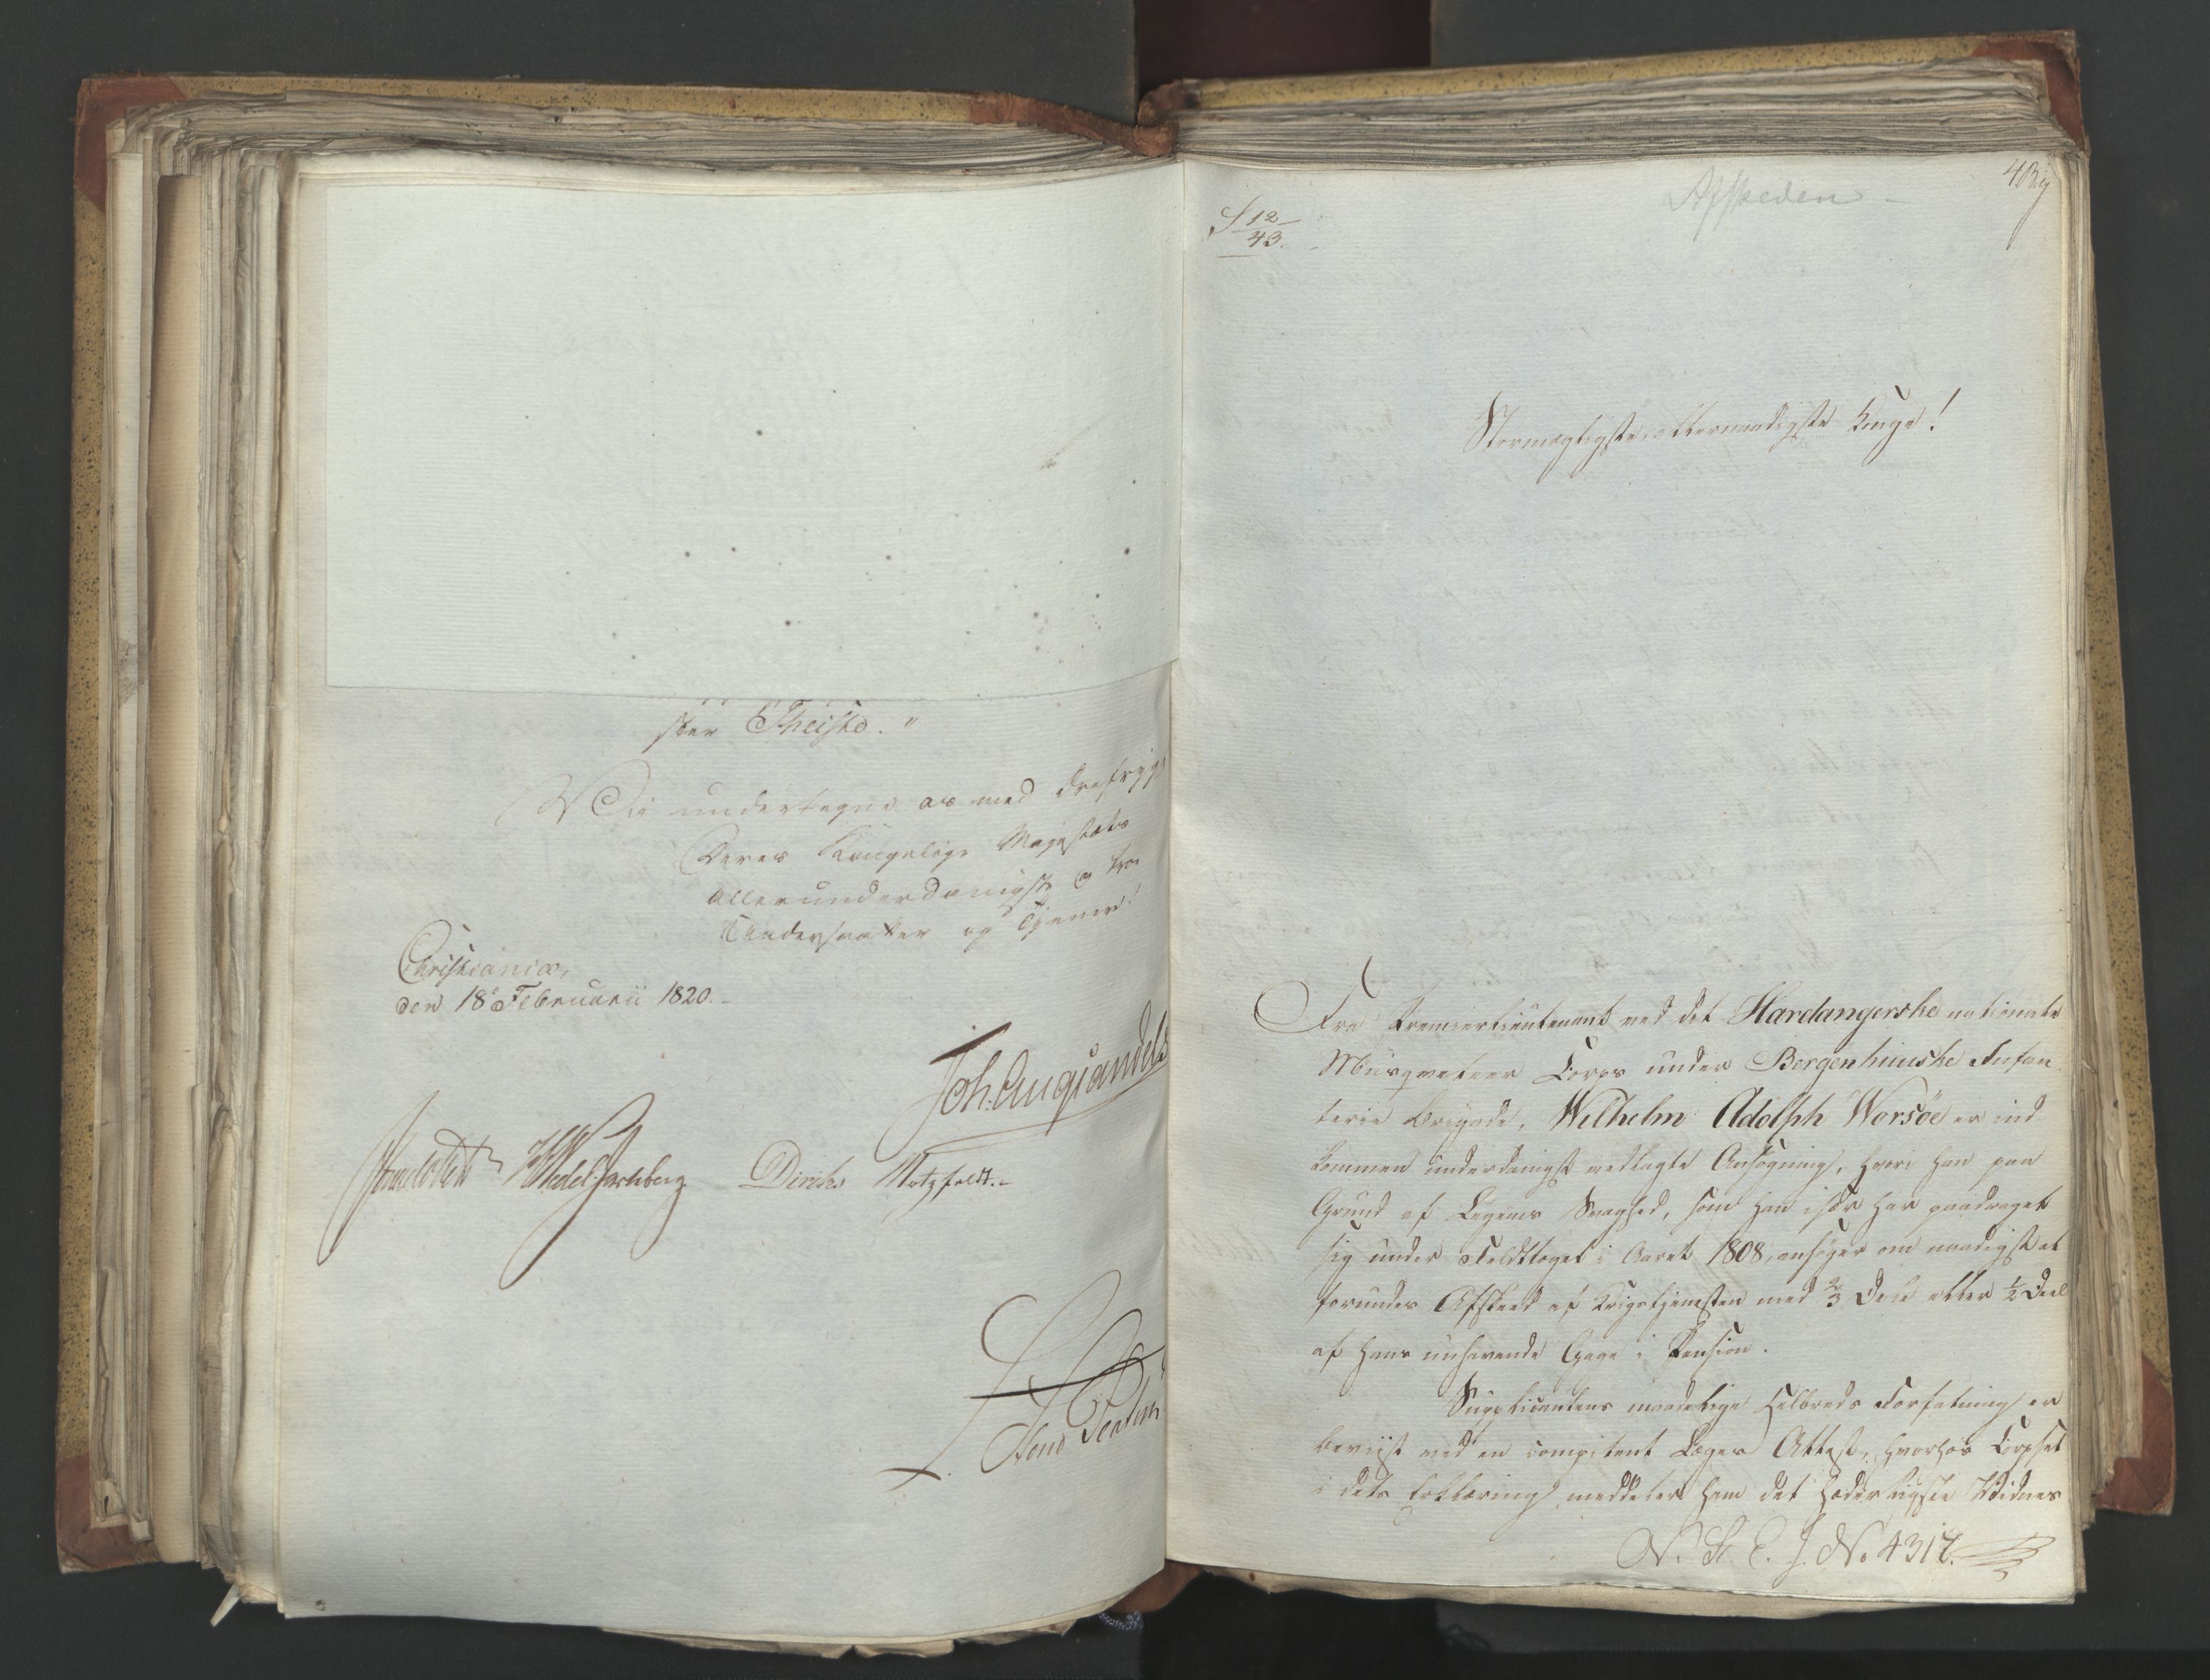 ster Theiste."
Vi undertegne os med Drefrygt
Deres Kongelige Majestæts
allerunderdanigste og troe
Undersaatter og Tjenere!
Christiania,
den 18de Februarii 1820.
Joh. Aug. Sandels
HWedel Jarlsberg Diriks Motzfeldt.
Afskeden
S 12/43.
Stormægtigste allernaadigste Konge!
Fra Premierlieutenant ved det Hardangerske nationale
Musqveteer Corps under Bergenhuuske Infan
terie Brigade, Wilhelm Adolph Worsöe er ind
kommen underdanigst vedlagte Ansøgning, hvori han paa
Grund af Legems Svaghed, som han især har paadraget
sig under Feldttoget i Aaret 1808, ansøger om naadigst at
forundes Afskeed af Krigstjenesten med 2/3 Dele eller 1/2 Deel
af hans nuhavende Gage i Pension.
Supplicantens maadelige Helbreds Forfatning er
beviist ved en competent Læges Attest, hvorhos Corpset
i dets Erklæring meddeler ham det hæderligste Vidnes
N. St. C. J. No. 4317.